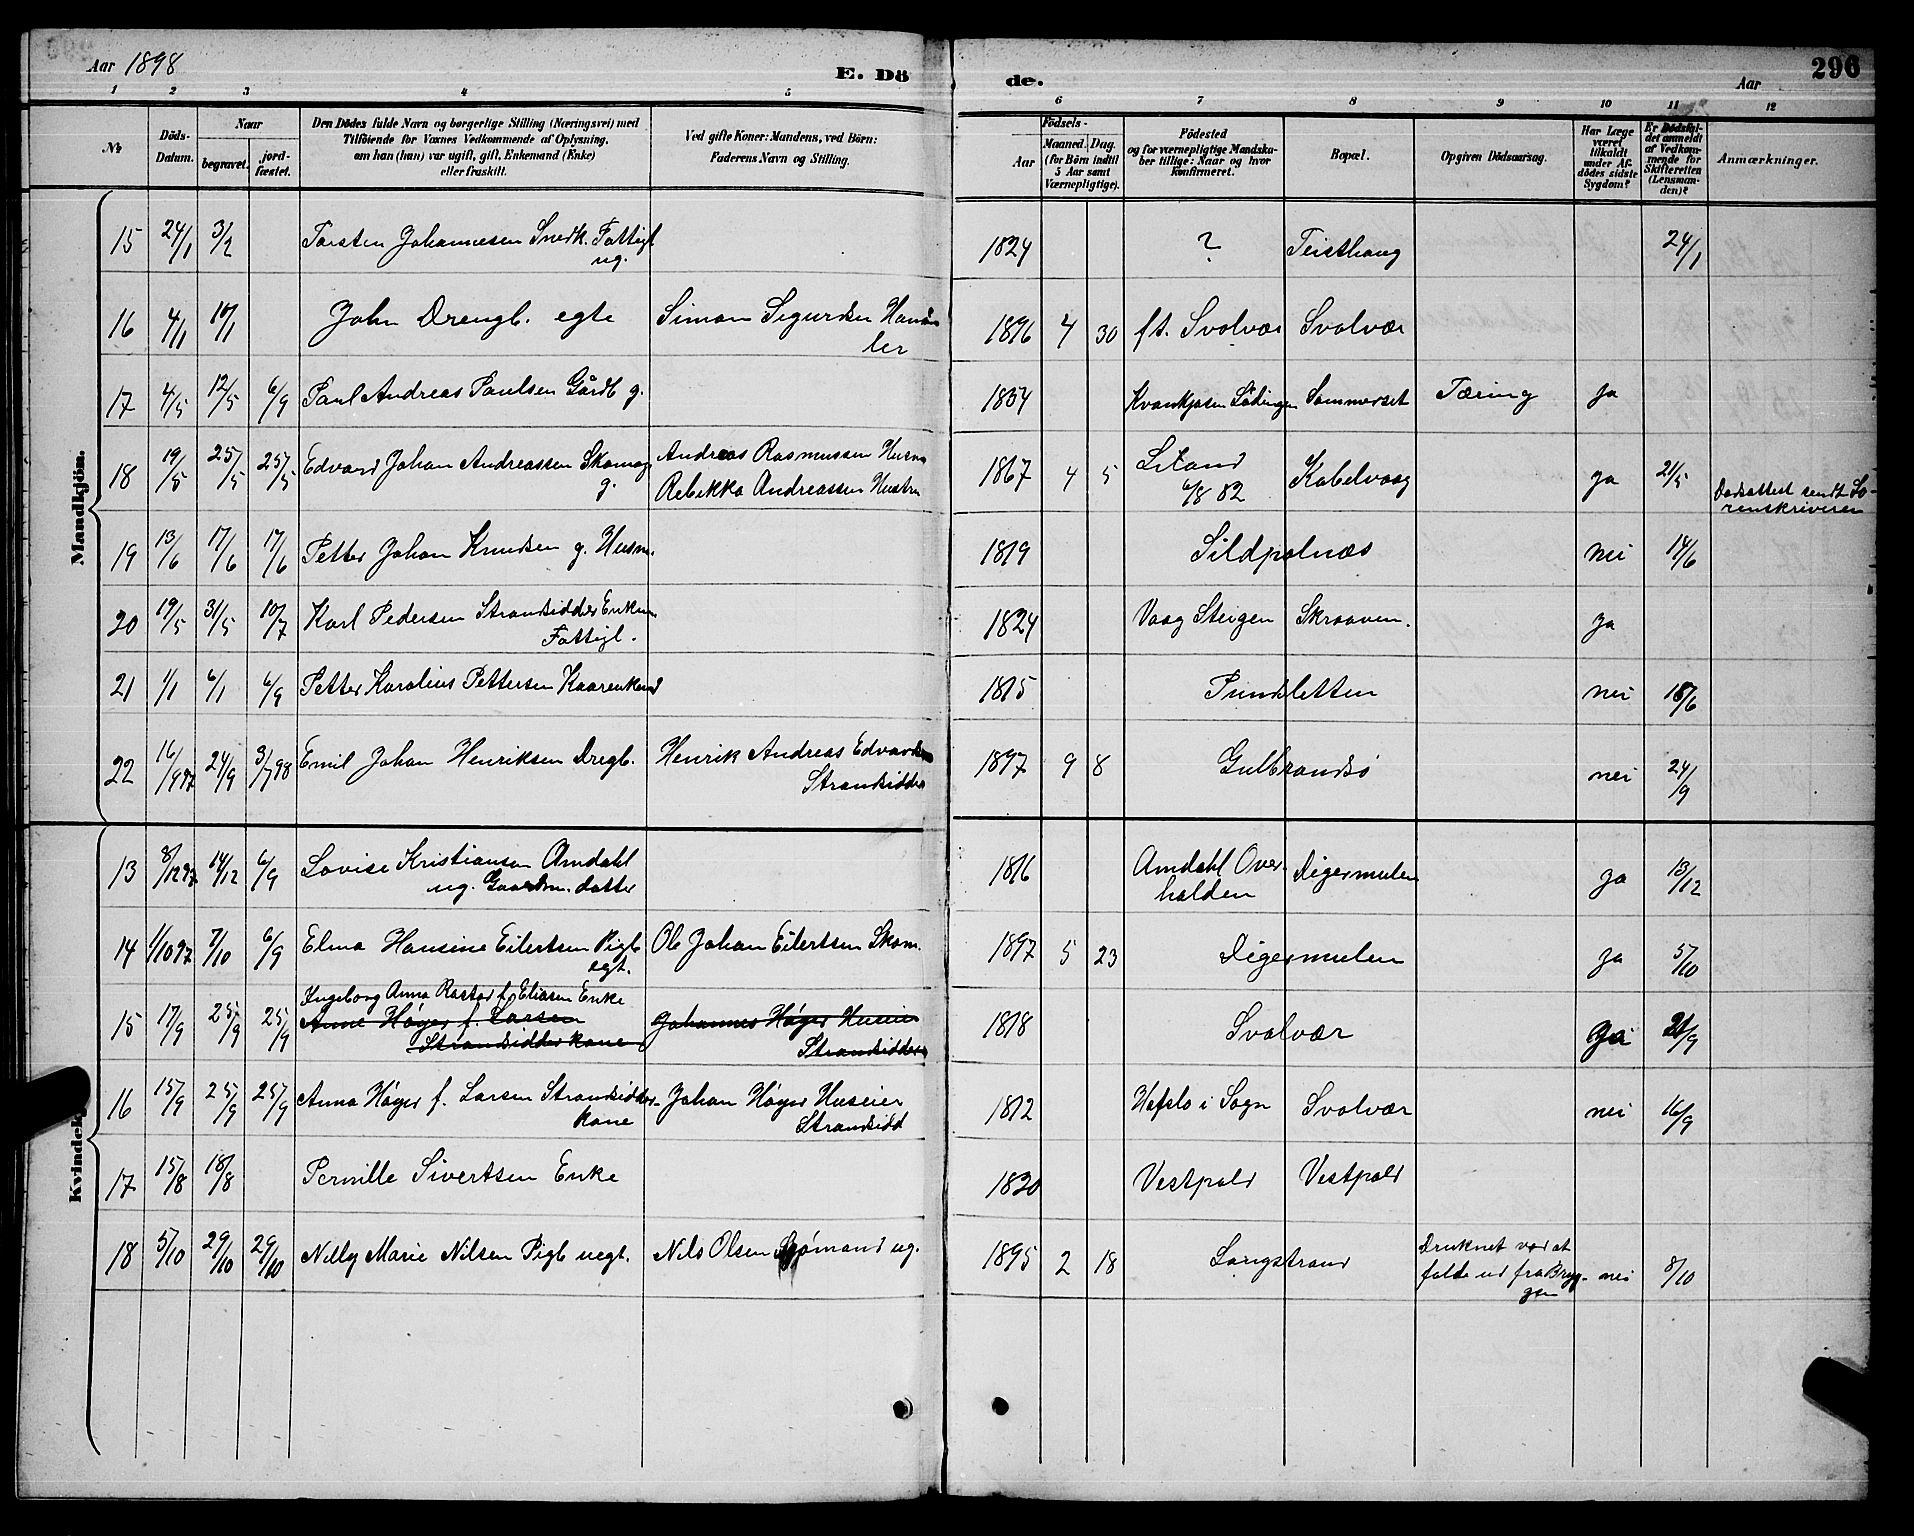 Aar 1898
E. Dö
de.
Aar
296
1 2 3 4 5 6 7 8 9 10 11 12
№
Döds-
Datum.
Naar
begravet.
jord-
fæstet.
Den Dödes fulde Navn og borgerlige Stilling (Næringsvei) med
Tilföiende for Voxnes Vedkommende af Oplysning,
om han (hun) var ugift, gift, Enkemand (Enke)
eller fraskilt.
Ved gifte Koner: Mandens, ved Börn:
Faderens Navn og Stilling.
Födsels-
Aar
Maaned. Dag.
(for Börn indtil
5 Aar samt
Værnepligtige).
Födested
og for værnepligtige Mandska-
ber tillige: Naar og hvor
konfirmeret.
Bopæl.
Opgiven Dödsaarsag.
Har Læge
været
tilkaldt
under Af-
dödes sidste
Sygdom?
Er Dödsfal-
det anmeldt
af Vedkom-
mende for
Skifteretten
(Lensman-
den)?
Anmærkninger.
Mandkjön.
15 24/1 3/2 Torsten Johannesen Snedk. Fattigl 1824 ? Teisthaug 24/1
ug.
16 4/1 10/1 John Drengb. egte Simon Sigurdsen Hand 1896 4 30 ft. Svolvær Svolvær
ler
17 4/5 12/5 6/9 Paul Andreas Paulsen Gårdb g. 1834 Kvankjosen Lödingen Sommerset Tæring Ja
18 19/5 25/5 25/5 Edvard Johan Andreassen Skomag Andreas Rasmussen Husm 1867 4 5 Kabelvaag ja 21/5
g. Rebekka Andreassen Hustru 6/8 82 Dødsattest sendt So-
renskriveren
19 13/6 17/6 17/6 Petter Johan Knudsen g. Husm. 1819 Sildpolnæs nei 14/6
20 19/5 31/5 10/7 Karl Pedersen Strandsidder Enkem 1824 Vaag Steigen Skraaven. Ja
Fattigl.
21 1/1 6/1 6/9 Petter Karolius Pettersen Kaarenkemd 1815 Pundsletten nei 18/6
22 16/9 97 24/9 3/7 98 Emil Johan Henriksen Dregb. Henrik Andreas Edvards 1897 9 8 Gulbrandsø nei 24/9
Strandsidder
Kvindekj
13 8/12 97 14/12 6/9 Lovise Kristiansen Amdahl 1816 Amdahl Over- Digermulen ja 13/12
ug. Gaardm. datter halden
14 1/10 97 7/10 6/9 Elma Hansine Eilertsen Pigb Ole Johan Eilertsen Skom. 1897 5 23 Digermulen ja 5/10
egt.
Ingeborg Anna Rastad f. Eliasen Enke
15 17/9 25/9 25/9 Anne Høyer f. Larsen Johannes Høyer Huseier 1818 Svolvær ja 21/9
Strandsidder kone Strandsidder
16 15/9 25/9 25/9 Anna Høyer f. Larsen Strandsidder- Johan Høyer Huseier 1812 Hafslo i Sogn Svolvær nei 16/9
kone Strandsidd
17 15/8 18/8 Pernille Sivertsen Enke 1820 Vestpold Vestpold
18 5/10 29/10 29/10 Nelly Marie Nilsen Pigb uegt. Nils Olsen Sjømand ug. 1895 2 18 Langstrand Druknet ved at
falde ud fra Bryg- nei 8/10
gen